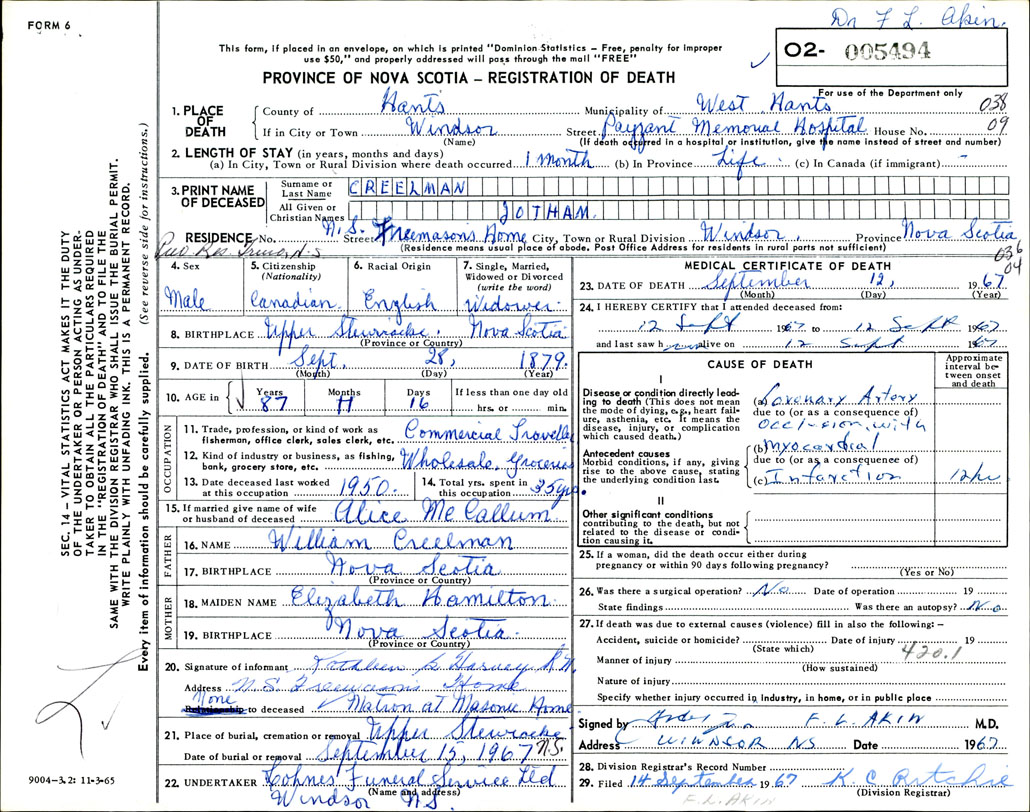 FORM 6
Dr F L. Akin.
This form, if placed in an envelope, on which is printed "Dominion Statistics – Free, penalty for improper
use $50," and properly addressed will pass through the mail "FREE"
O2- 005494
PROVINCE OF NOVA SCOTIA – REGISTRATION OF DEATH
For use of the Department only
1. PLACE OF DEATH County of Hants Municipality of West Hants 038
If in City or Town Windsor Street Payzant Memorial Hospital House No. 09
(Name) (If death occurred in a hospital or institution, give the name instead of street and number)
2. LENGTH OF STAY (in years, months and days)
(a) In City, Town or Rural Division where death occurred 1 month (b) In Province Life (c) In Canada (if immigrant) -
3. PRINT NAME OF DECEASED Surname or Last Name CREELMAN
All Given or Christian Names JOTHAM.
RESIDENCE No. N.S. Street Freemasons Home City, Town or Rural Division Windsor Province Nova Scotia
(Residence means usual place of abode. Post Office Address for residents in rural parts not sufficient)
Res. Truro, N.S 036
04
4. Sex Male
5. Citizenship (Nationality) Canadian
6. Racial Origin English
7. Single, Married, Widowed or Divorced (write the word) Widower
8. BIRTHPLACE Upper Stewiacke. Nova Scotia
(Province or Country)
9. DATE OF BIRTH Sept. 28, 1879.
(Month) (Day) (Year)
10. AGE in Years 87 Months 11 Days 16 If less than one day old hrs. or min.
OCCUPATION
11. Trade, profession, or kind of work as fisherman, office clerk, sales clerk, etc. Commercial Traveller
12. Kind of industry or business, as fishing, bank, grocery store, etc. Wholesale, Groceries
13. Date deceased last worked at this occupation 1950. 14. Total yrs. spent in this occupation 35 yrs.
15. If married give name of wife or husband of deceased Alice McCallum
FATHER
16. NAME William Creelman
17. BIRTHPLACE Nova Scotia
(Province or Country)
MOTHER
18. MAIDEN NAME Elizabeth Hamilton
19. BIRTHPLACE Nova Scotia.
(Province or Country)
20. Signature of informant Kathleen Harvey R.N.
Address N.S. Freemasons Home
None
Relationship to deceased Matron at Masonic Home
21. Place of burial, cremation or removal Upper Stewiacke
Date of burial or removal September 15, 1967 N.S.
22. UNDERTAKER Cohnes Funeral Service Ltd
(Name and address)
Windsor N.S.
MEDICAL CERTIFICATE OF DEATH
23. DATE OF DEATH September 12, 1967
(Month) (Day) (Year)
24. I HEREBY CERTIFY that I attended deceased from:
12 Sept 1967 to 12 Sept 1967
and last saw him alive on 12 Sept 1967
CAUSE OF DEATH
Approximate interval between onset and death
I
Disease or condition directly leading to death (This does not mean the mode of dying, e.g., heart failure, asthenia, etc. It means the disease, injury, or complication which caused death.)
(a) Coronary Artery
due to (or as a consequence of)
occlusion with
Antecedent causes
Morbid conditions, if any, giving rise to the above cause, stating the underlying condition last.
(b) myocardial
due to (or as a consequence of)
(c) Infarction 12 hr
II
Other significant conditions
contributing to the death, but not related to the disease or condition causing it.
25. If a woman, did the death occur either during pregnancy or within 90 days following pregnancy?
(Yes or No)
26. Was there a surgical operation? No Date of operation 19
State findings Was there an autopsy? No
27. If death was due to external causes (violence) fill in also the following: –
Accident, suicide or homicide? Date of injury 19
(State which) 420.1
Manner of injury
(How sustained)
Nature of injury
Specify whether injury occurred in industry, in home, or in public place
Signed by F. L. AKIN M.D.
Address WINDSOR NS Date 1967
28. Division Registrar's Record Number
29. Filed 14 September 1967 K C Ritchie
(Division Registrar)
F.L. AKIN
SEC. 14 – VITAL STATISTICS ACT MAKES IT THE DUTY
OF THE UNDERTAKER OR PERSON ACTING AS UNDER-
TAKER TO OBTAIN ALL THE PARTICULARS REQUIRED
IN THE "REGISTRATION OF DEATH" AND TO FILE THE
SAME WITH THE DIVISION REGISTRAR WHO SHALL ISSUE THE BURIAL PERMIT.
WRITE PLAINLY WITH UNFADING INK. THIS IS A PERMANENT RECORD.
Every item of information should be carefully supplied. (See reverse side for instructions.)
9004-3.2: 11-3-65